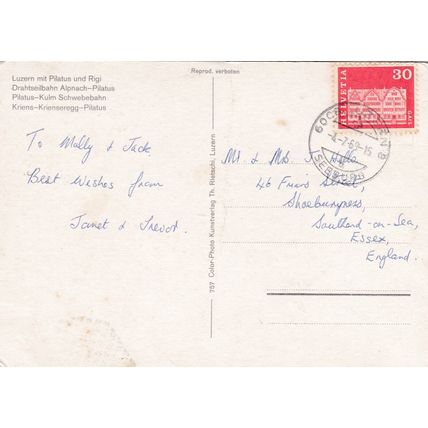 Reprod. verboten
Luzern mit Pilatus und Rigi
Drahtseilbahn Alpnach-Pilatus
Pilatus-Kulm Schwebebahn
Kriens-Krienseregg-Pilatus
HELVETIA
30
SEEBURG
To Molly & Jack,
Best Wishes from
Janet & Trevor.
757 Color-Photo Kunstverlag Th. Rietschi, Luzern
Mr & Mrs J.
46 Friars Street
Shoeburyness,
Southend-on-Sea,
Essex,
England.